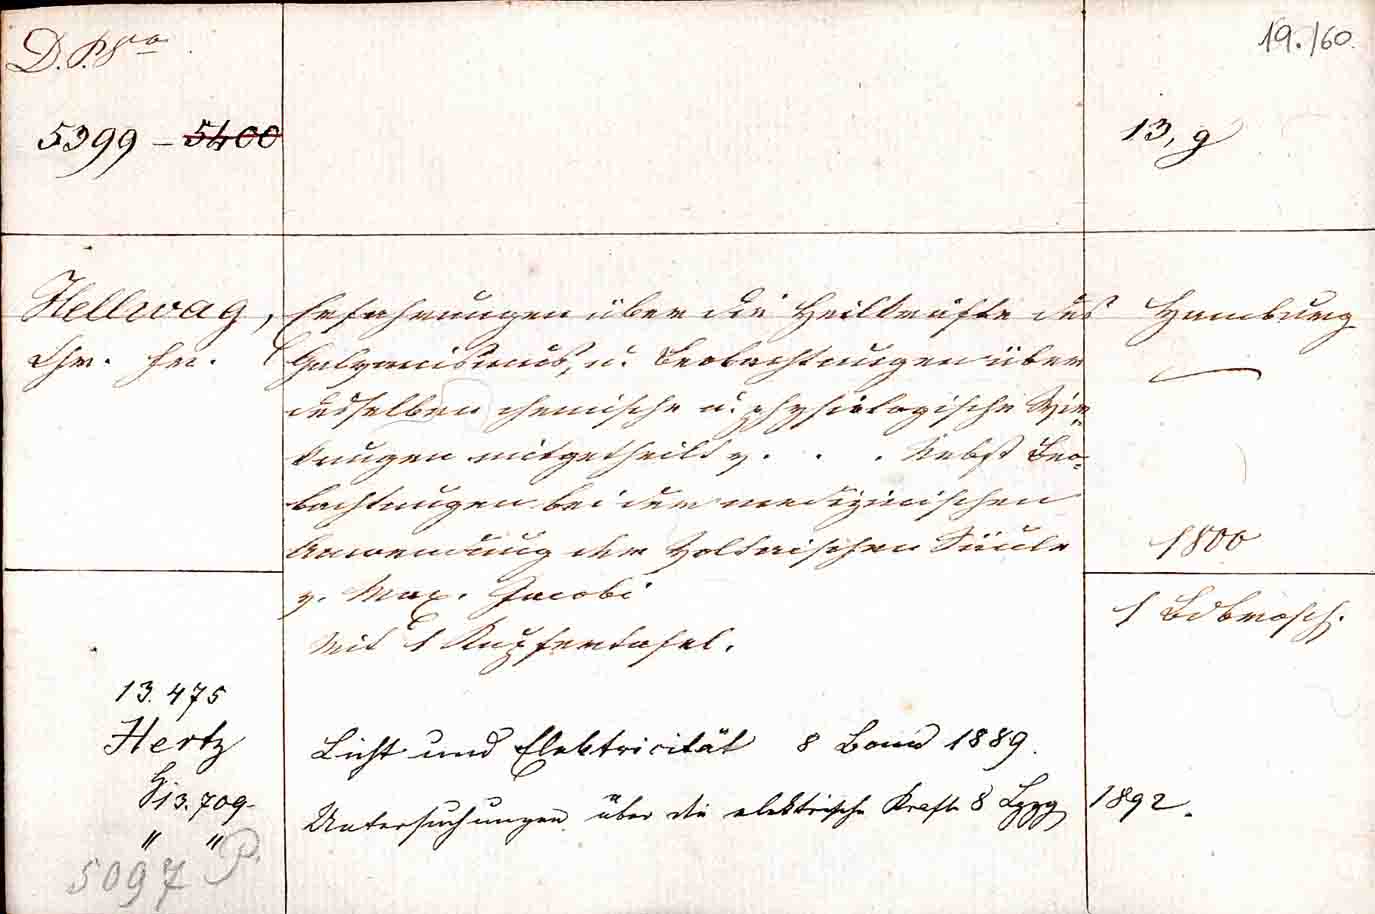 D. P. 8vo
19./60.
5399 – 5400
13, g
Hellwag,
Chr. Fr.
Erfahrungen über die Heilkräfte des
Galvanismus, u. Beobachtungen über
desselben chemische u. physiologische Wir-
kungen mitgetheilt v. . . . Nebst Beo-
bachtungen bei der medizinischen
Anwendung der Voltaischen Säule
v. Max. Jacobi
Mit 1 Kupfertafel.
Hamburg
1800
1 Bd brosch.
13.475
Hertz
Licht und Elektricität 8 Bonn 1889.
H 13.709
Untersuchungen über die elektrische Kraft 8 Lpzg 1892.
" "
5097 P.